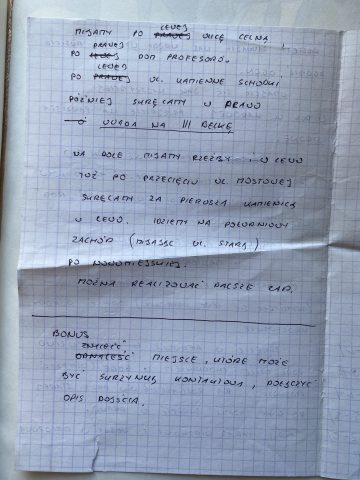 MIJAMY PO LEWEJ PRAWEJ ULICĘ CELNĄ
PO PRAWEJ LEWEJ DOM PROFESORÓW
PO LEWEJ PRAWEJ UL. KAMIENNE SCHODKI
PÓŹNIEJ SKRĘCAMY W PRAWO
→ UWAGA NA III BELKĘ
NA DOLE MIJAMY RZEŹBY I W LEWO
TUŻ PO PRZECIĘCIU UL. MOSTOWEJ
SKRĘCAMY ZA PIERWSZĄ KAMIENICĄ
W LEWO. IDZIEMY NA POŁUDNIOWY
ZACHÓD (MIJAJĄC UL. STARĄ)
PO NOWOMIEJSKIEJ.
MOŻNA REALIZOWAĆ DALSZE ZAD.
BONUS
ZNALEŹĆ
ODNALEŹĆ MIEJSCE, KTÓRE MOŻE
BYĆ SKRZYNKĄ KONTAKTOWĄ, DOŁĄCZYĆ
OPIS DOJŚCIA.